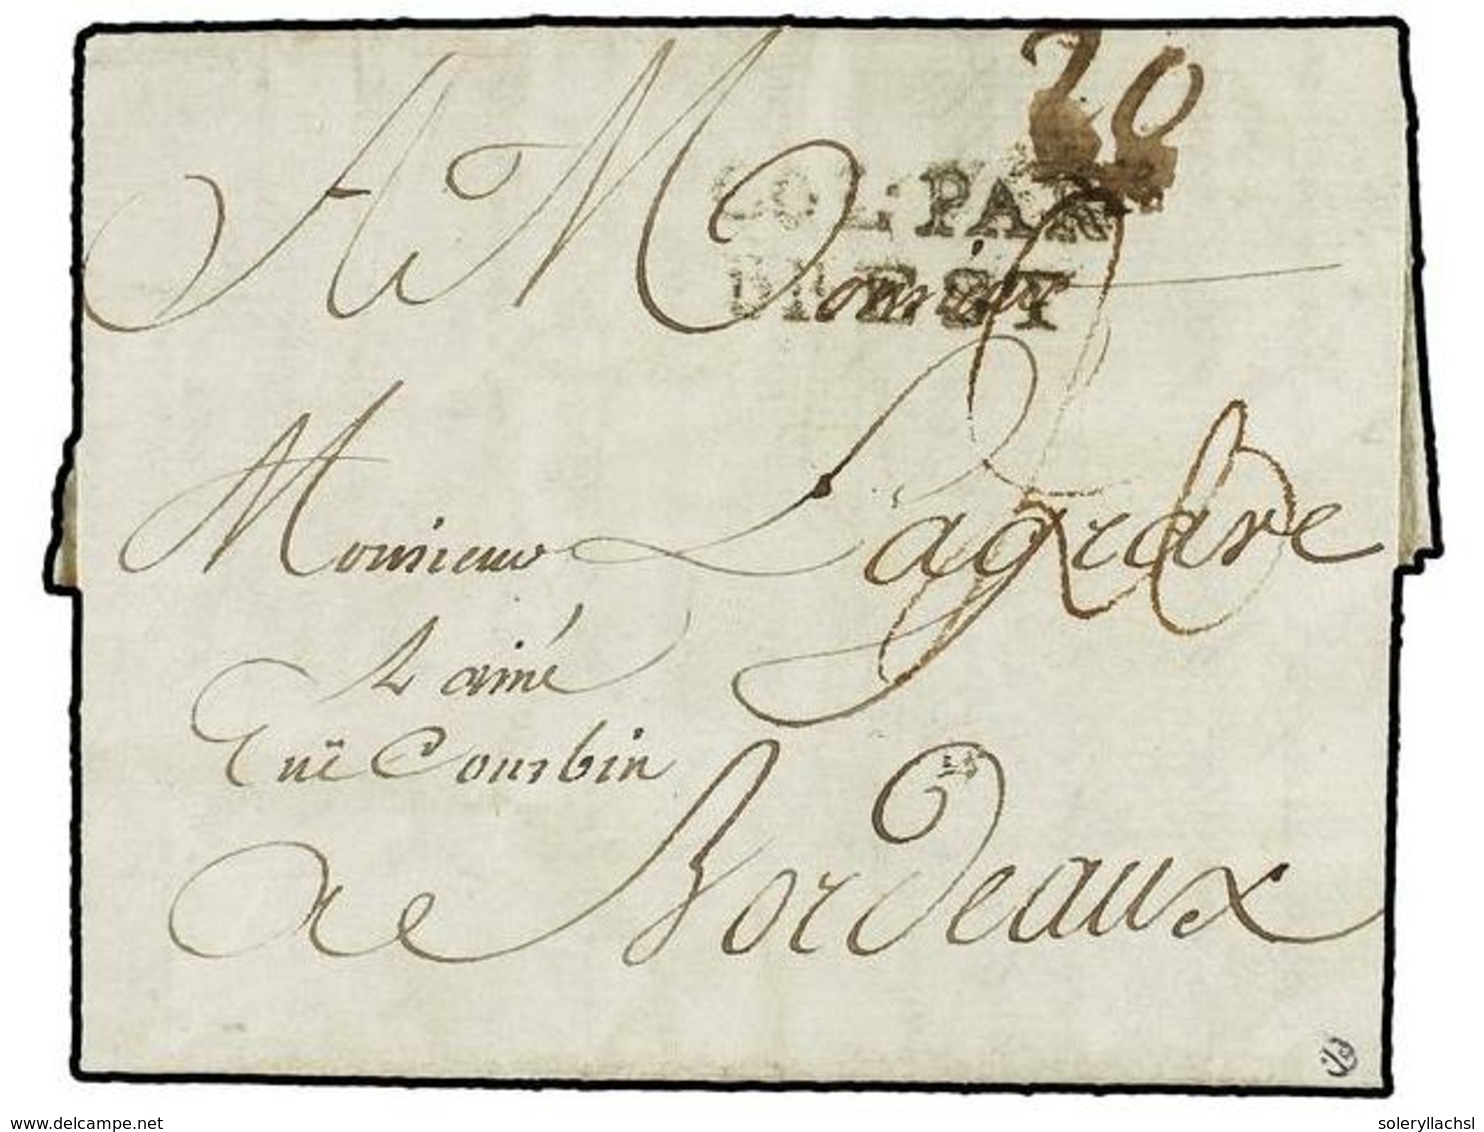 20
COL. PAR
BREST
A Monsieur
Monsieur Lagrave
L'ainé
Ruë Courbin
a Bordeaux
delcampe.net
soleryllachsl